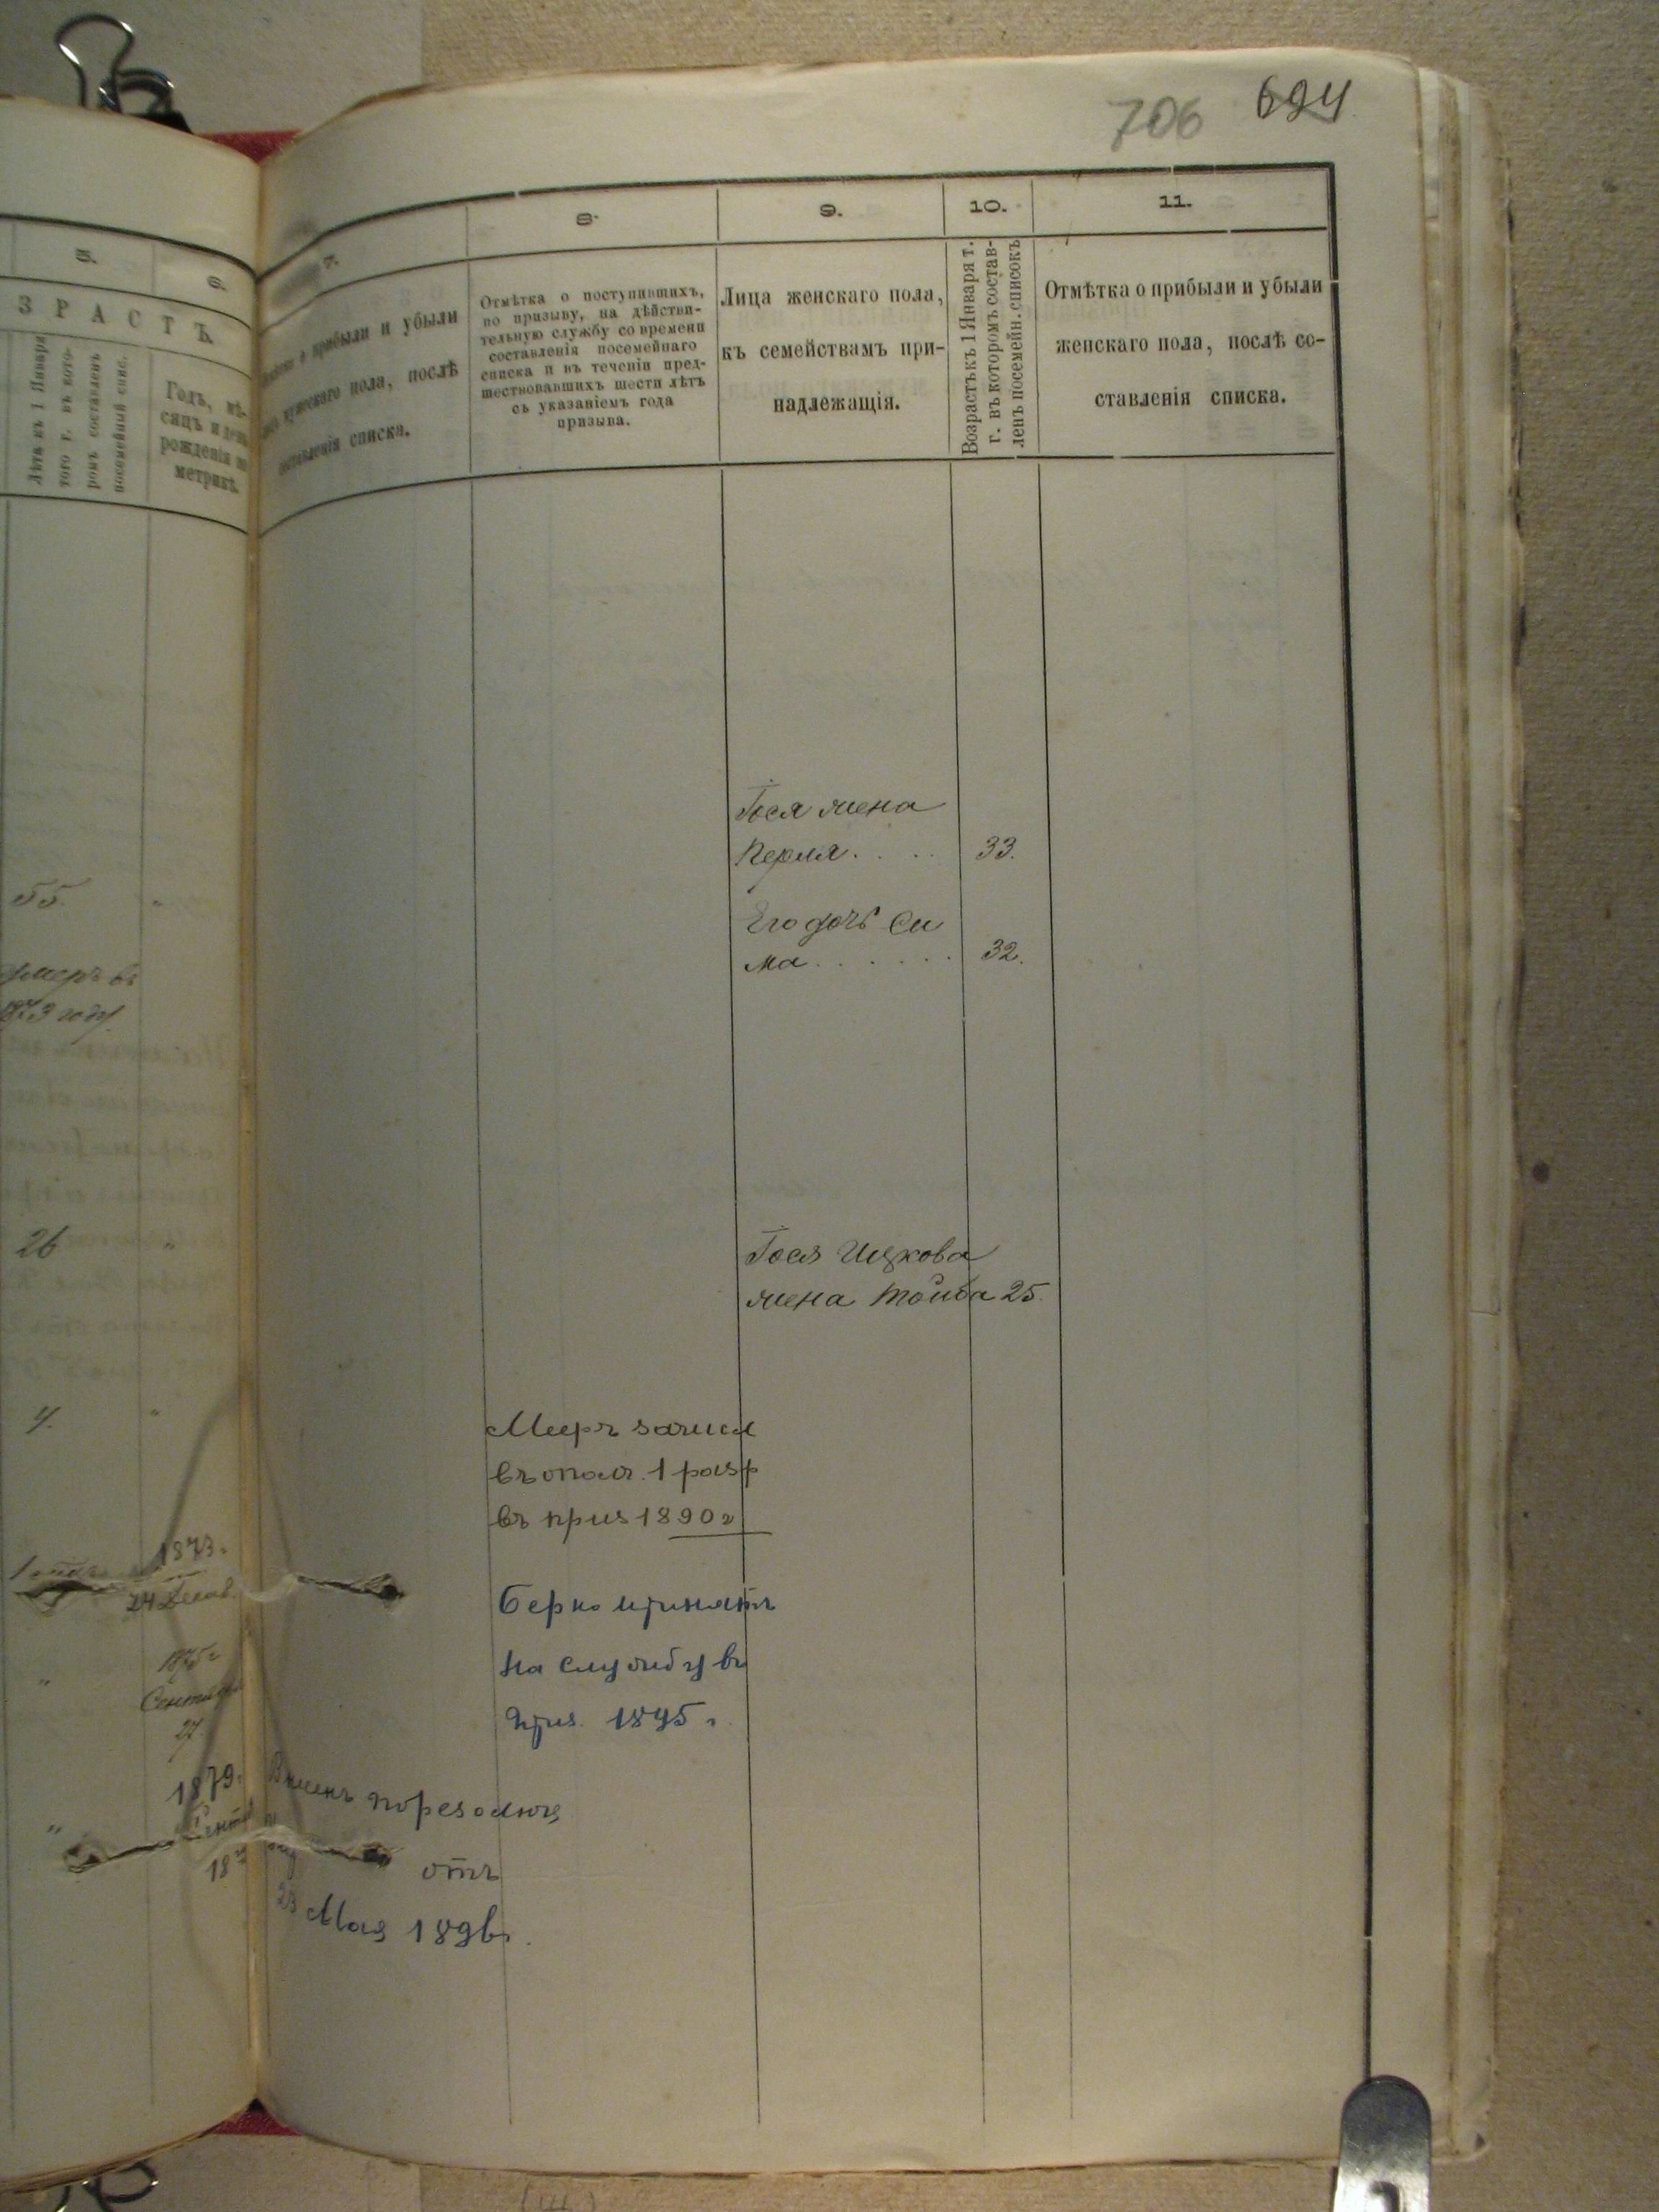 706 694
5.
6.
ЗРАСТЪ.
Лѣтъ къ 1 Января
того г. въ кото-
ромъ составленъ
посемейный спис.
Годъ, мѣ-
сяцъ и день
рожденія по
метрикѣ.
55.
умеръ въ
1873 году
26
4.
1873.
24 Декаб.
1875 г
Сентября
27
1879.
Сент
18
7.
о прибыли и убыли
мужскаго пола, послѣ
составленія списка.
8.
Отмѣтка о поступившихъ,
по призыву, на дѣйстви-
тельную службу со времени
составленія посемейнаго
списка и въ теченіи пред-
шествовавшихъ шести лѣтъ
съ указаніемъ года
призыва.
9.
Лица женскаго пола,
къ семействамъ при-
надлежащія.
10.
Возрастъ къ 1 Января т.
г. въ которомъ состав-
ленъ посемейн. списокъ
11.
Отмѣтка о прибыли и убыли
женскаго пола, послѣ со-
ставленія списка.
жена
Перля. . . . 33.
Его дочь Си
ма. . . . . . 32.
Ицкова
жена Тойба 25.
зачисл
въ опол. 1 разр
въ приз 1890 г
Берко принятъ
на службу въ
приз. 1895 г.
по резолюц
отъ
23 Мая 1896 г.